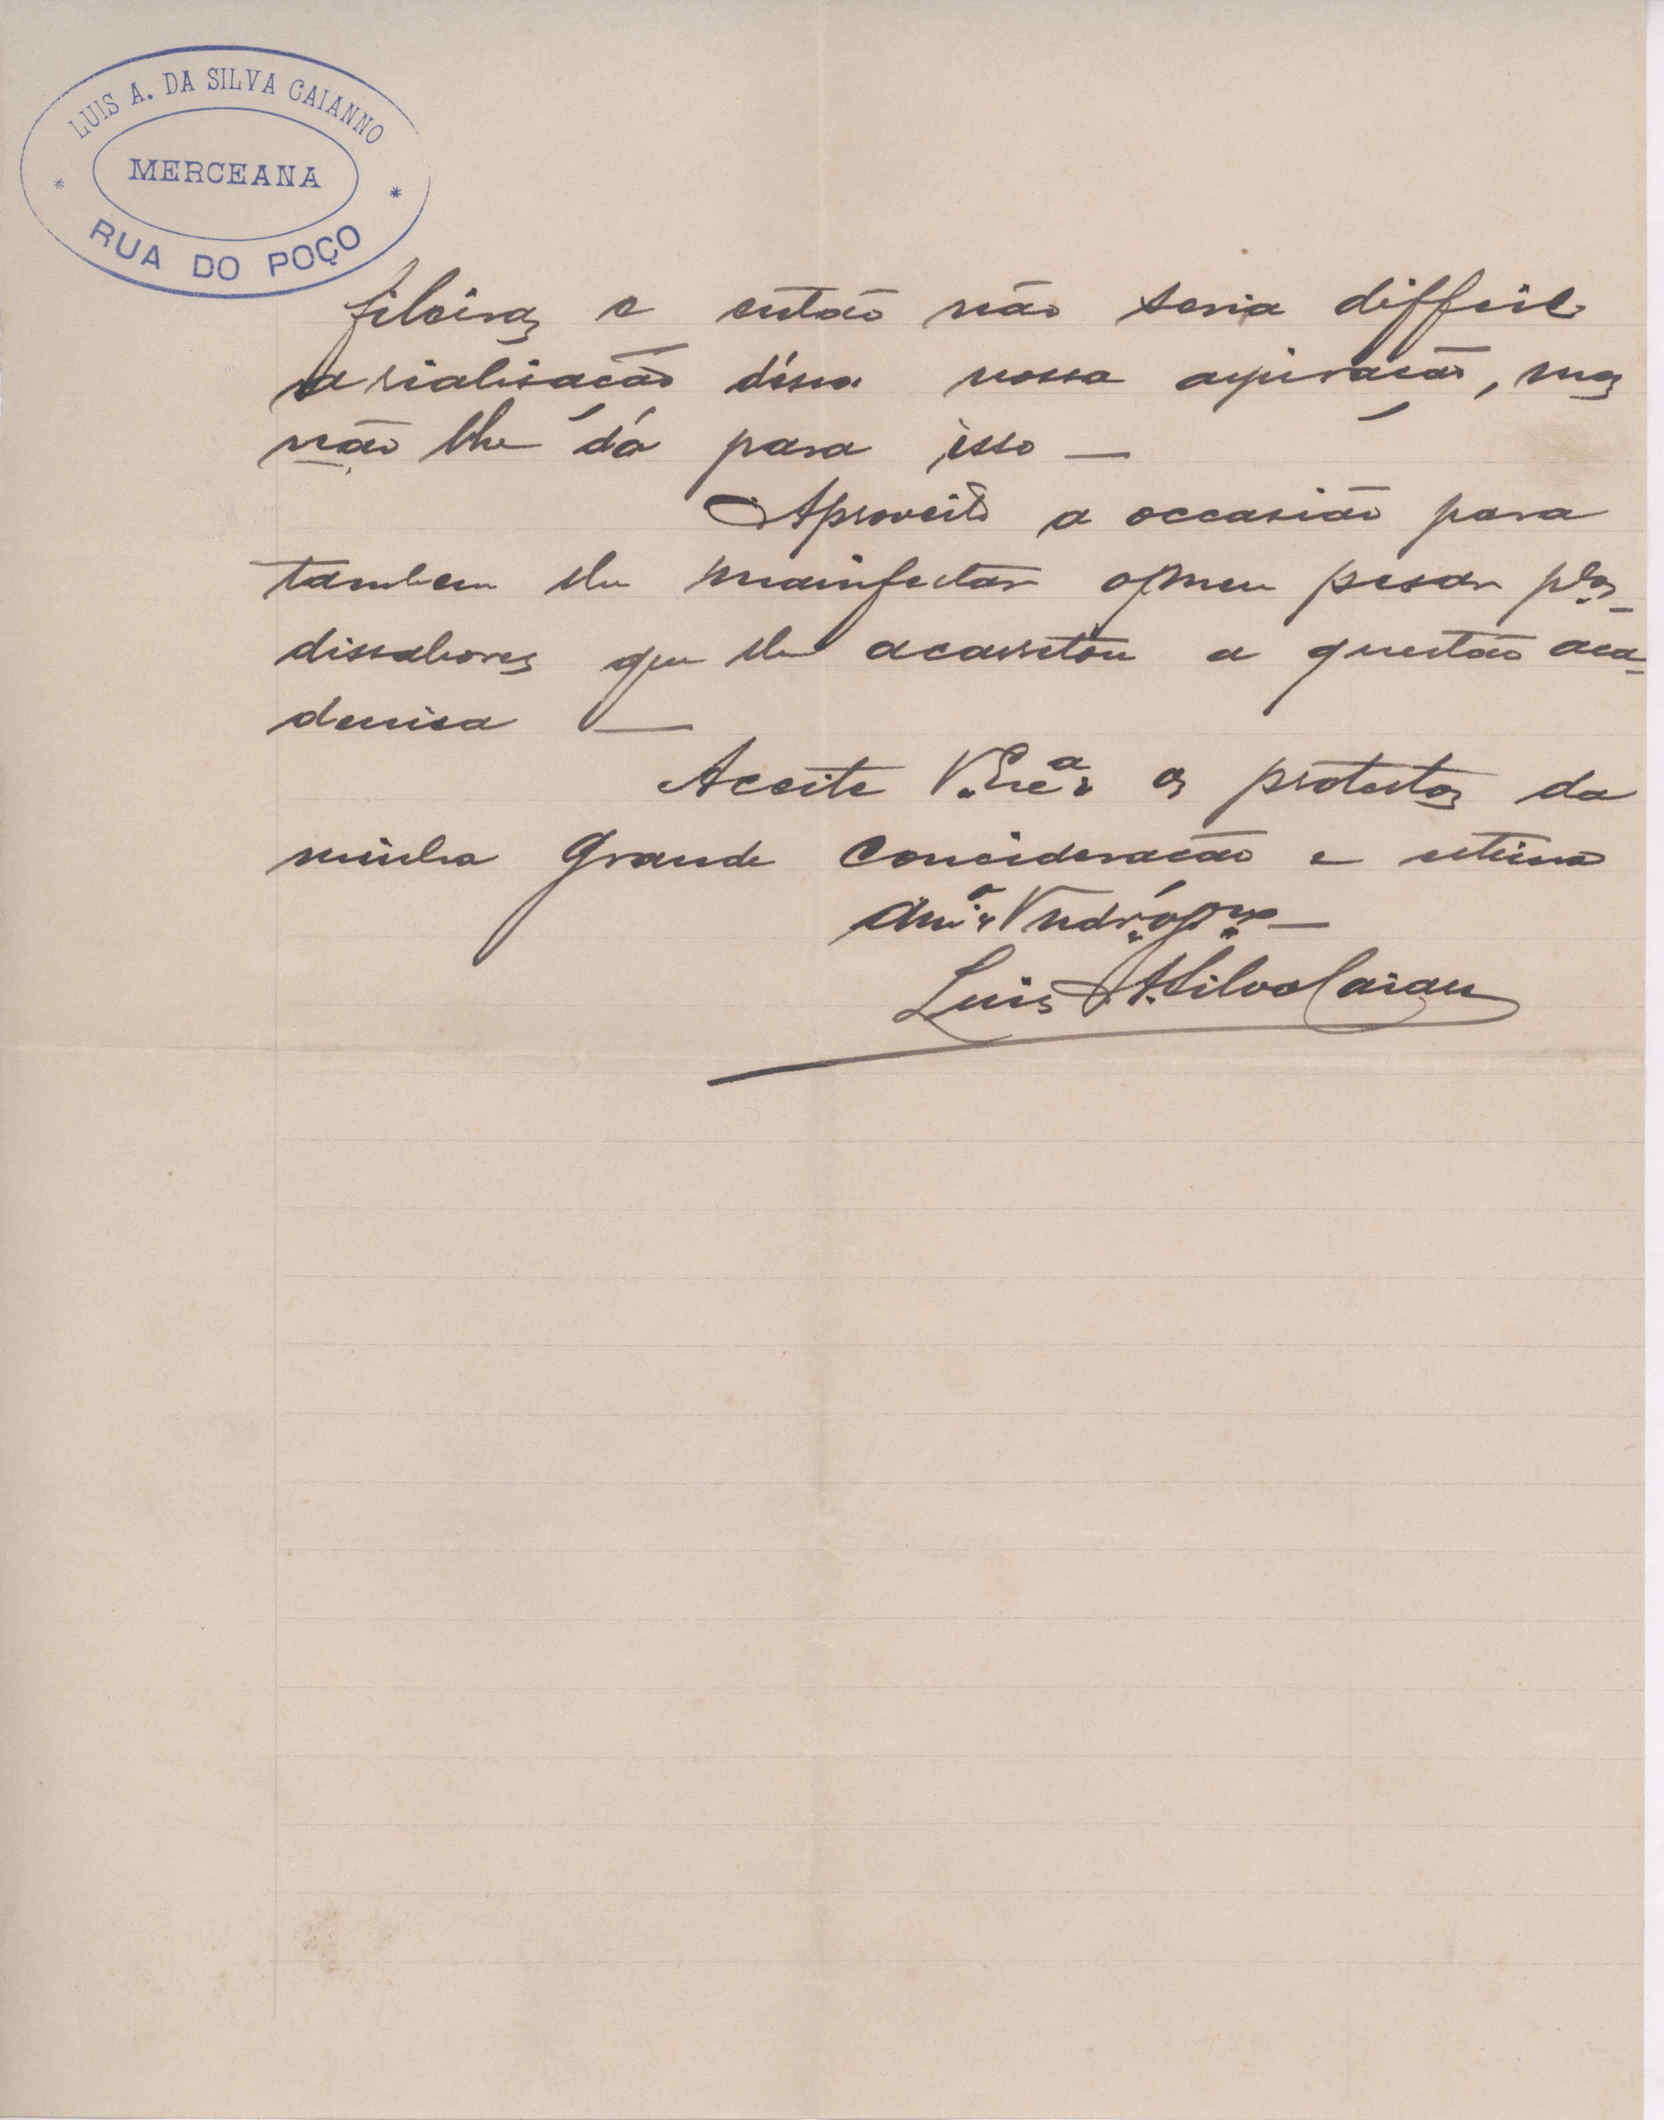 LUIS A. DA SILVA CAIANNO
MERCEANA
RUA DO POÇO
fileiras e então não seria difficil
a rialisação dessa nossa aspiração, mas
não lhe dá para isso —
Aproveito a occasião para
tambem lhe mainfestar o meu pesar plos
dissabores que lhe acarretou a questão aca-
demica —
Aceite V. Exc.ª os protestos da
minha grande concideração e estima
Am.º
Luis A. Silva Caiano